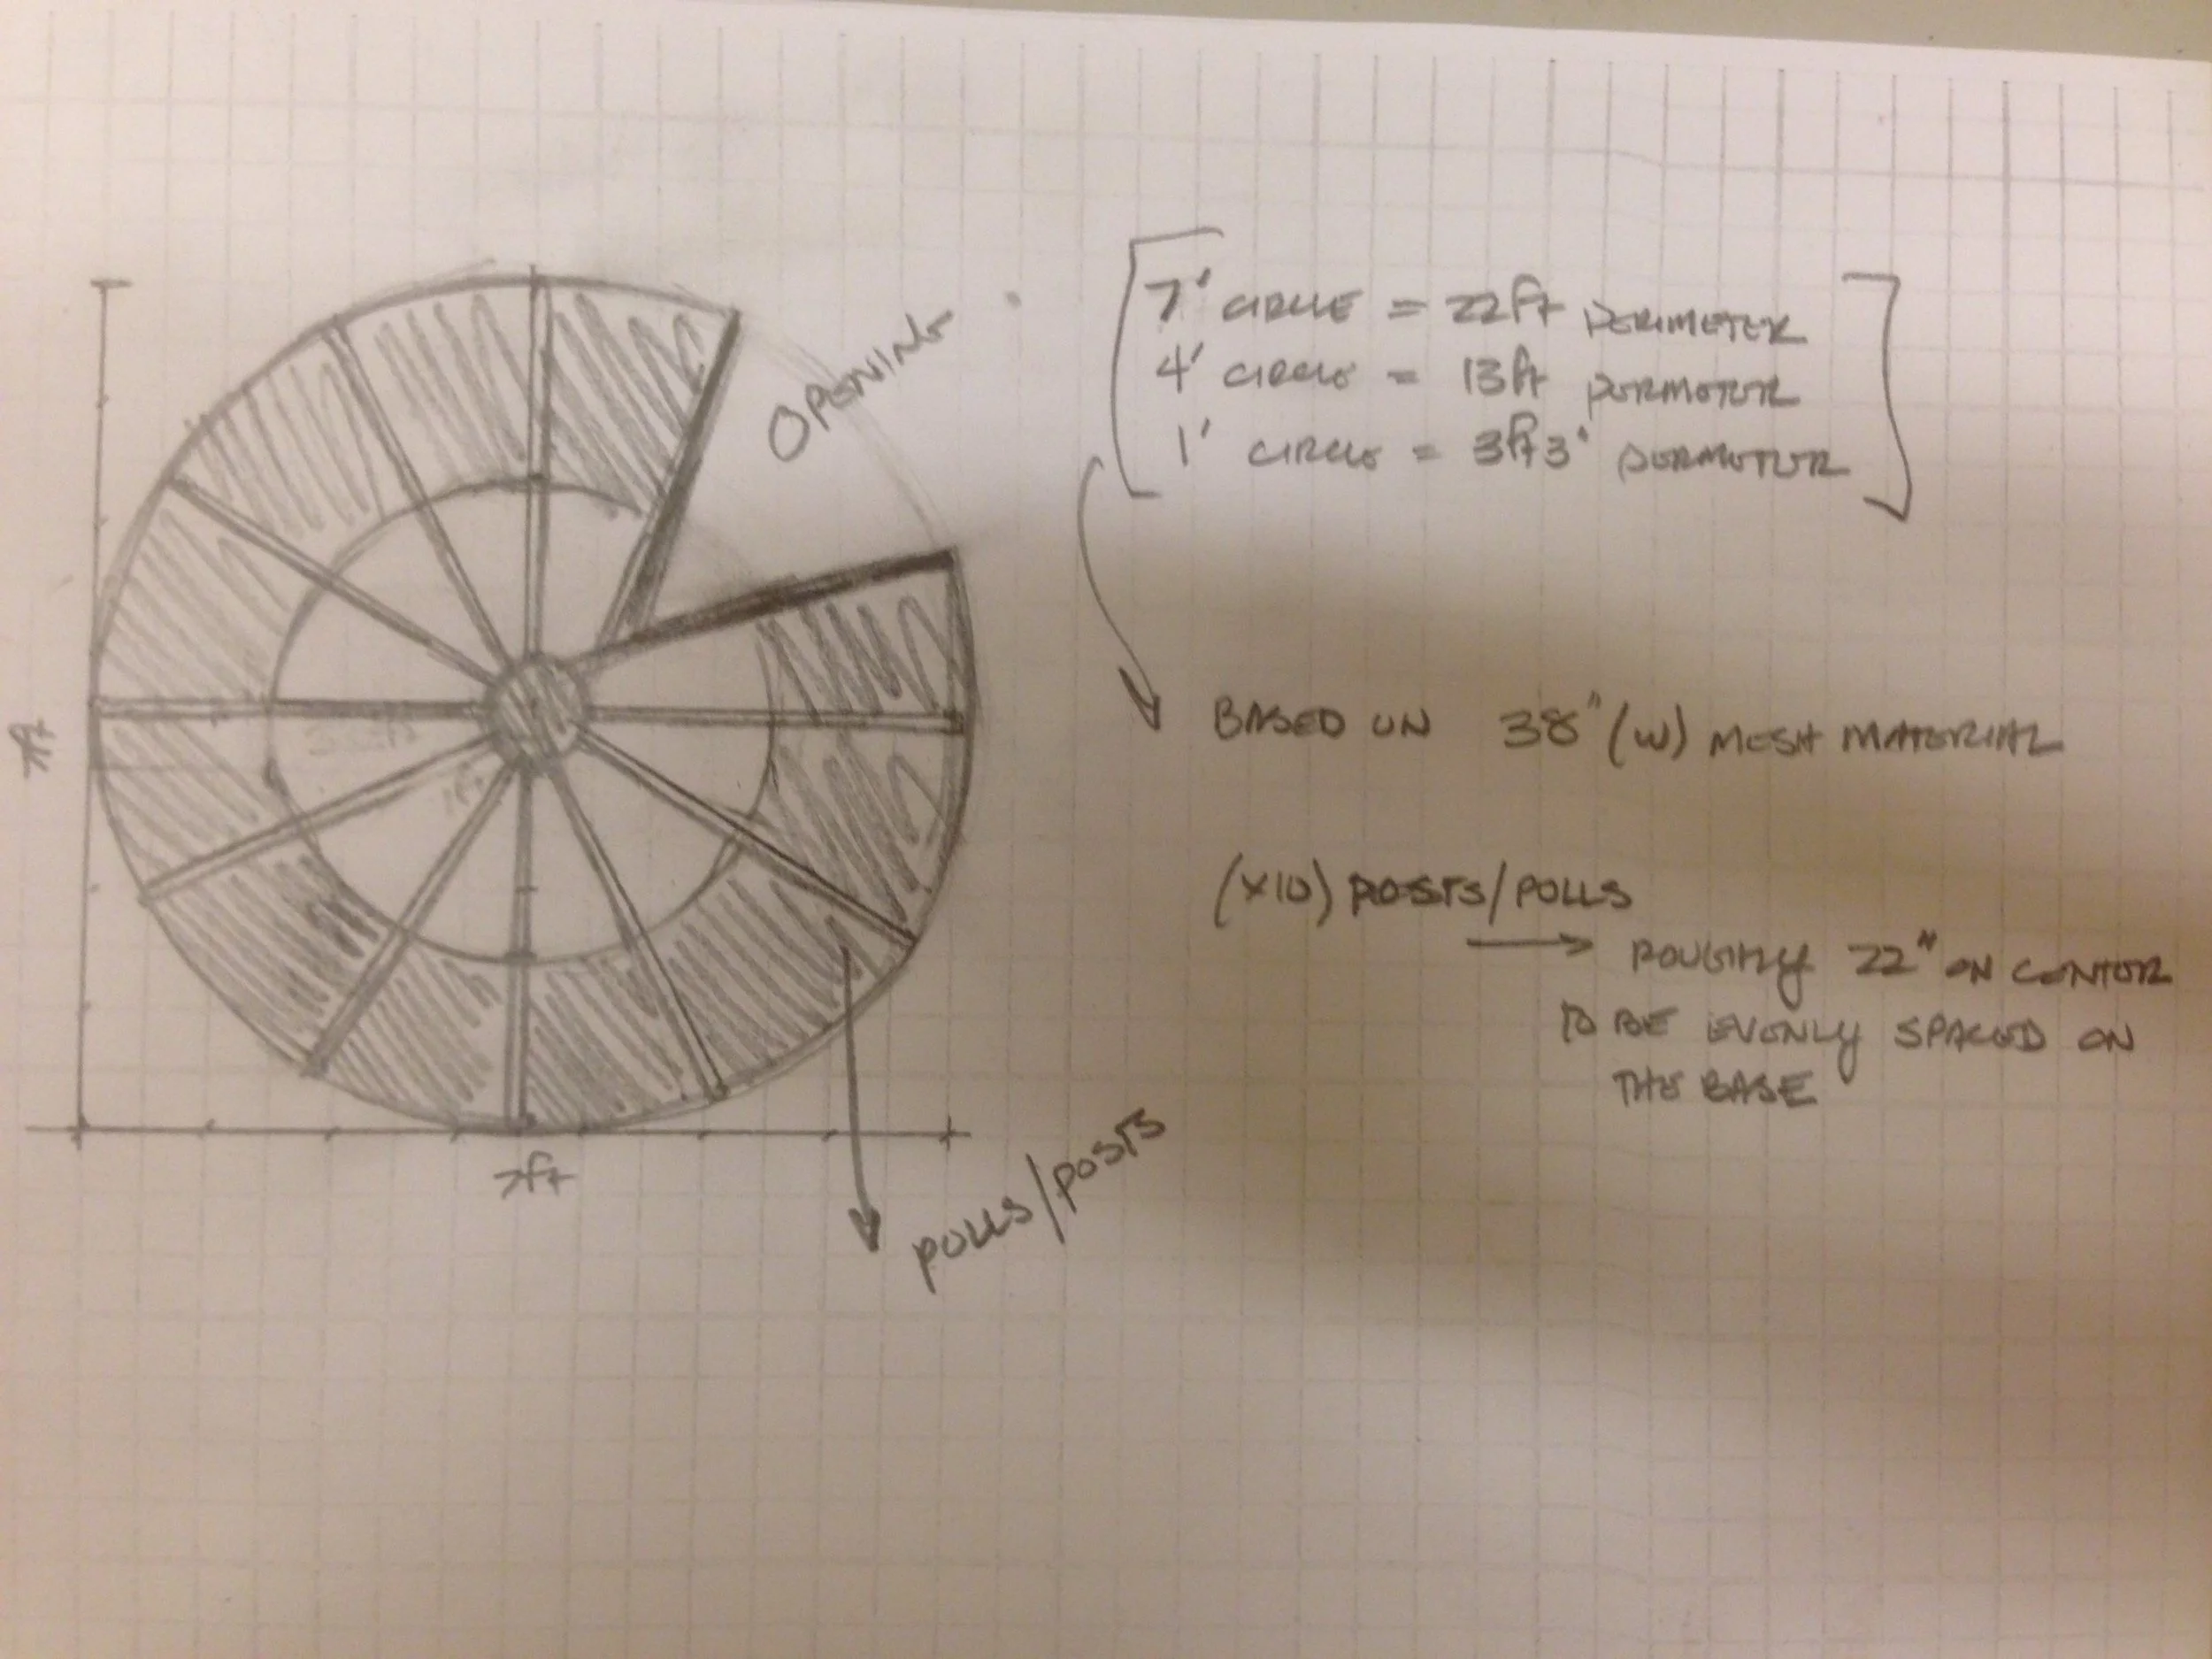 OPENING
7' CIRCLE = 22ft PERIMETER
4' CIRCLE = 13ft PERMETER
1' CIRCLE = 3ft 3" PERMETER
BASED ON 38" (W) MESH MATERIAL
(x10) POSTS/POLLS
ROUGHLY 22" ON CENTER
TO BE EVENLY SPACED ON
THE BASE
7ft
7ft
POLLS/POSTS